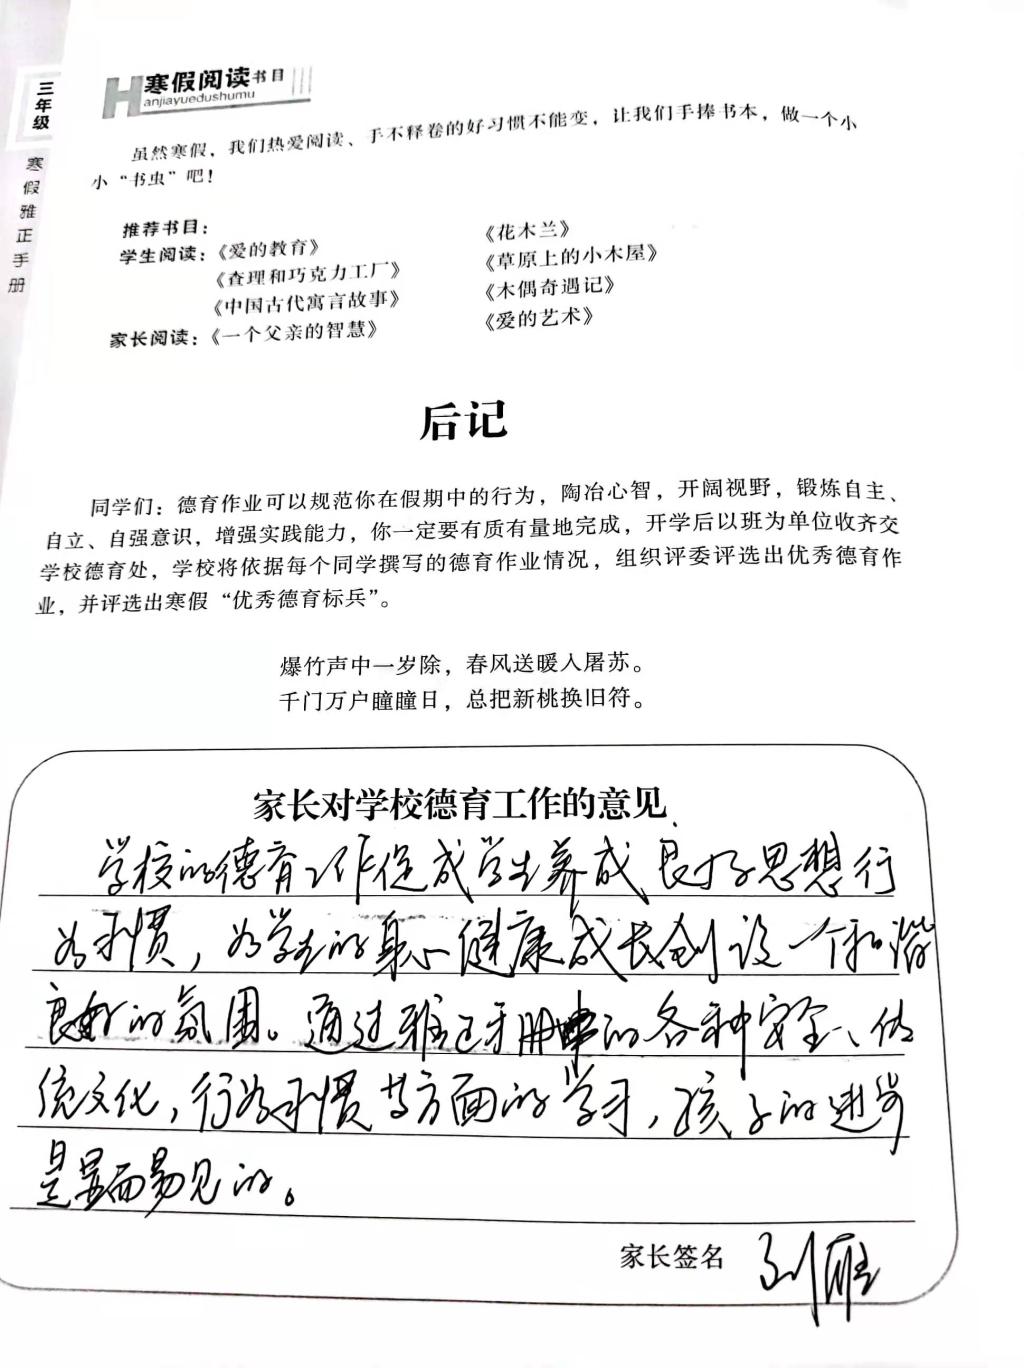 三年级
寒假雅正手册
寒假阅读书目
anjiayuedushumu
虽然寒假，我们热爱阅读、手不释卷的好习惯不能变，让我们手捧书本，做一个小
小“书虫”吧！
推荐书目：
学生阅读：《爱的教育》 《花木兰》
《查理和巧克力工厂》 《草原上的小木屋》
《中国古代寓言故事》 《木偶奇遇记》
家长阅读：《一个父亲的智慧》 《爱的艺术》
后记
同学们：德育作业可以规范你在假期中的行为，陶冶心智，开阔视野，锻炼自主、
自立、自强意识，增强实践能力，你一定要有质有量地完成，开学后以班为单位收齐交
学校德育处，学校将依据每个同学撰写的德育作业情况，组织评委评选出优秀德育作
业，并评选出寒假“优秀德育标兵”。
爆竹声中一岁除，春风送暖入屠苏。
千门万户瞳瞳日，总把新桃换旧符。
家长对学校德育工作的意见
学校的德育工作促成学生养成良好思想行
为习惯，为学生的身心健康成长创设一个和谐
良好的氛围。通过雅正手册的各种安全、传
统文化，行为习惯等方面的学习，孩子的进步
是显而易见的。
家长签名 刘雁